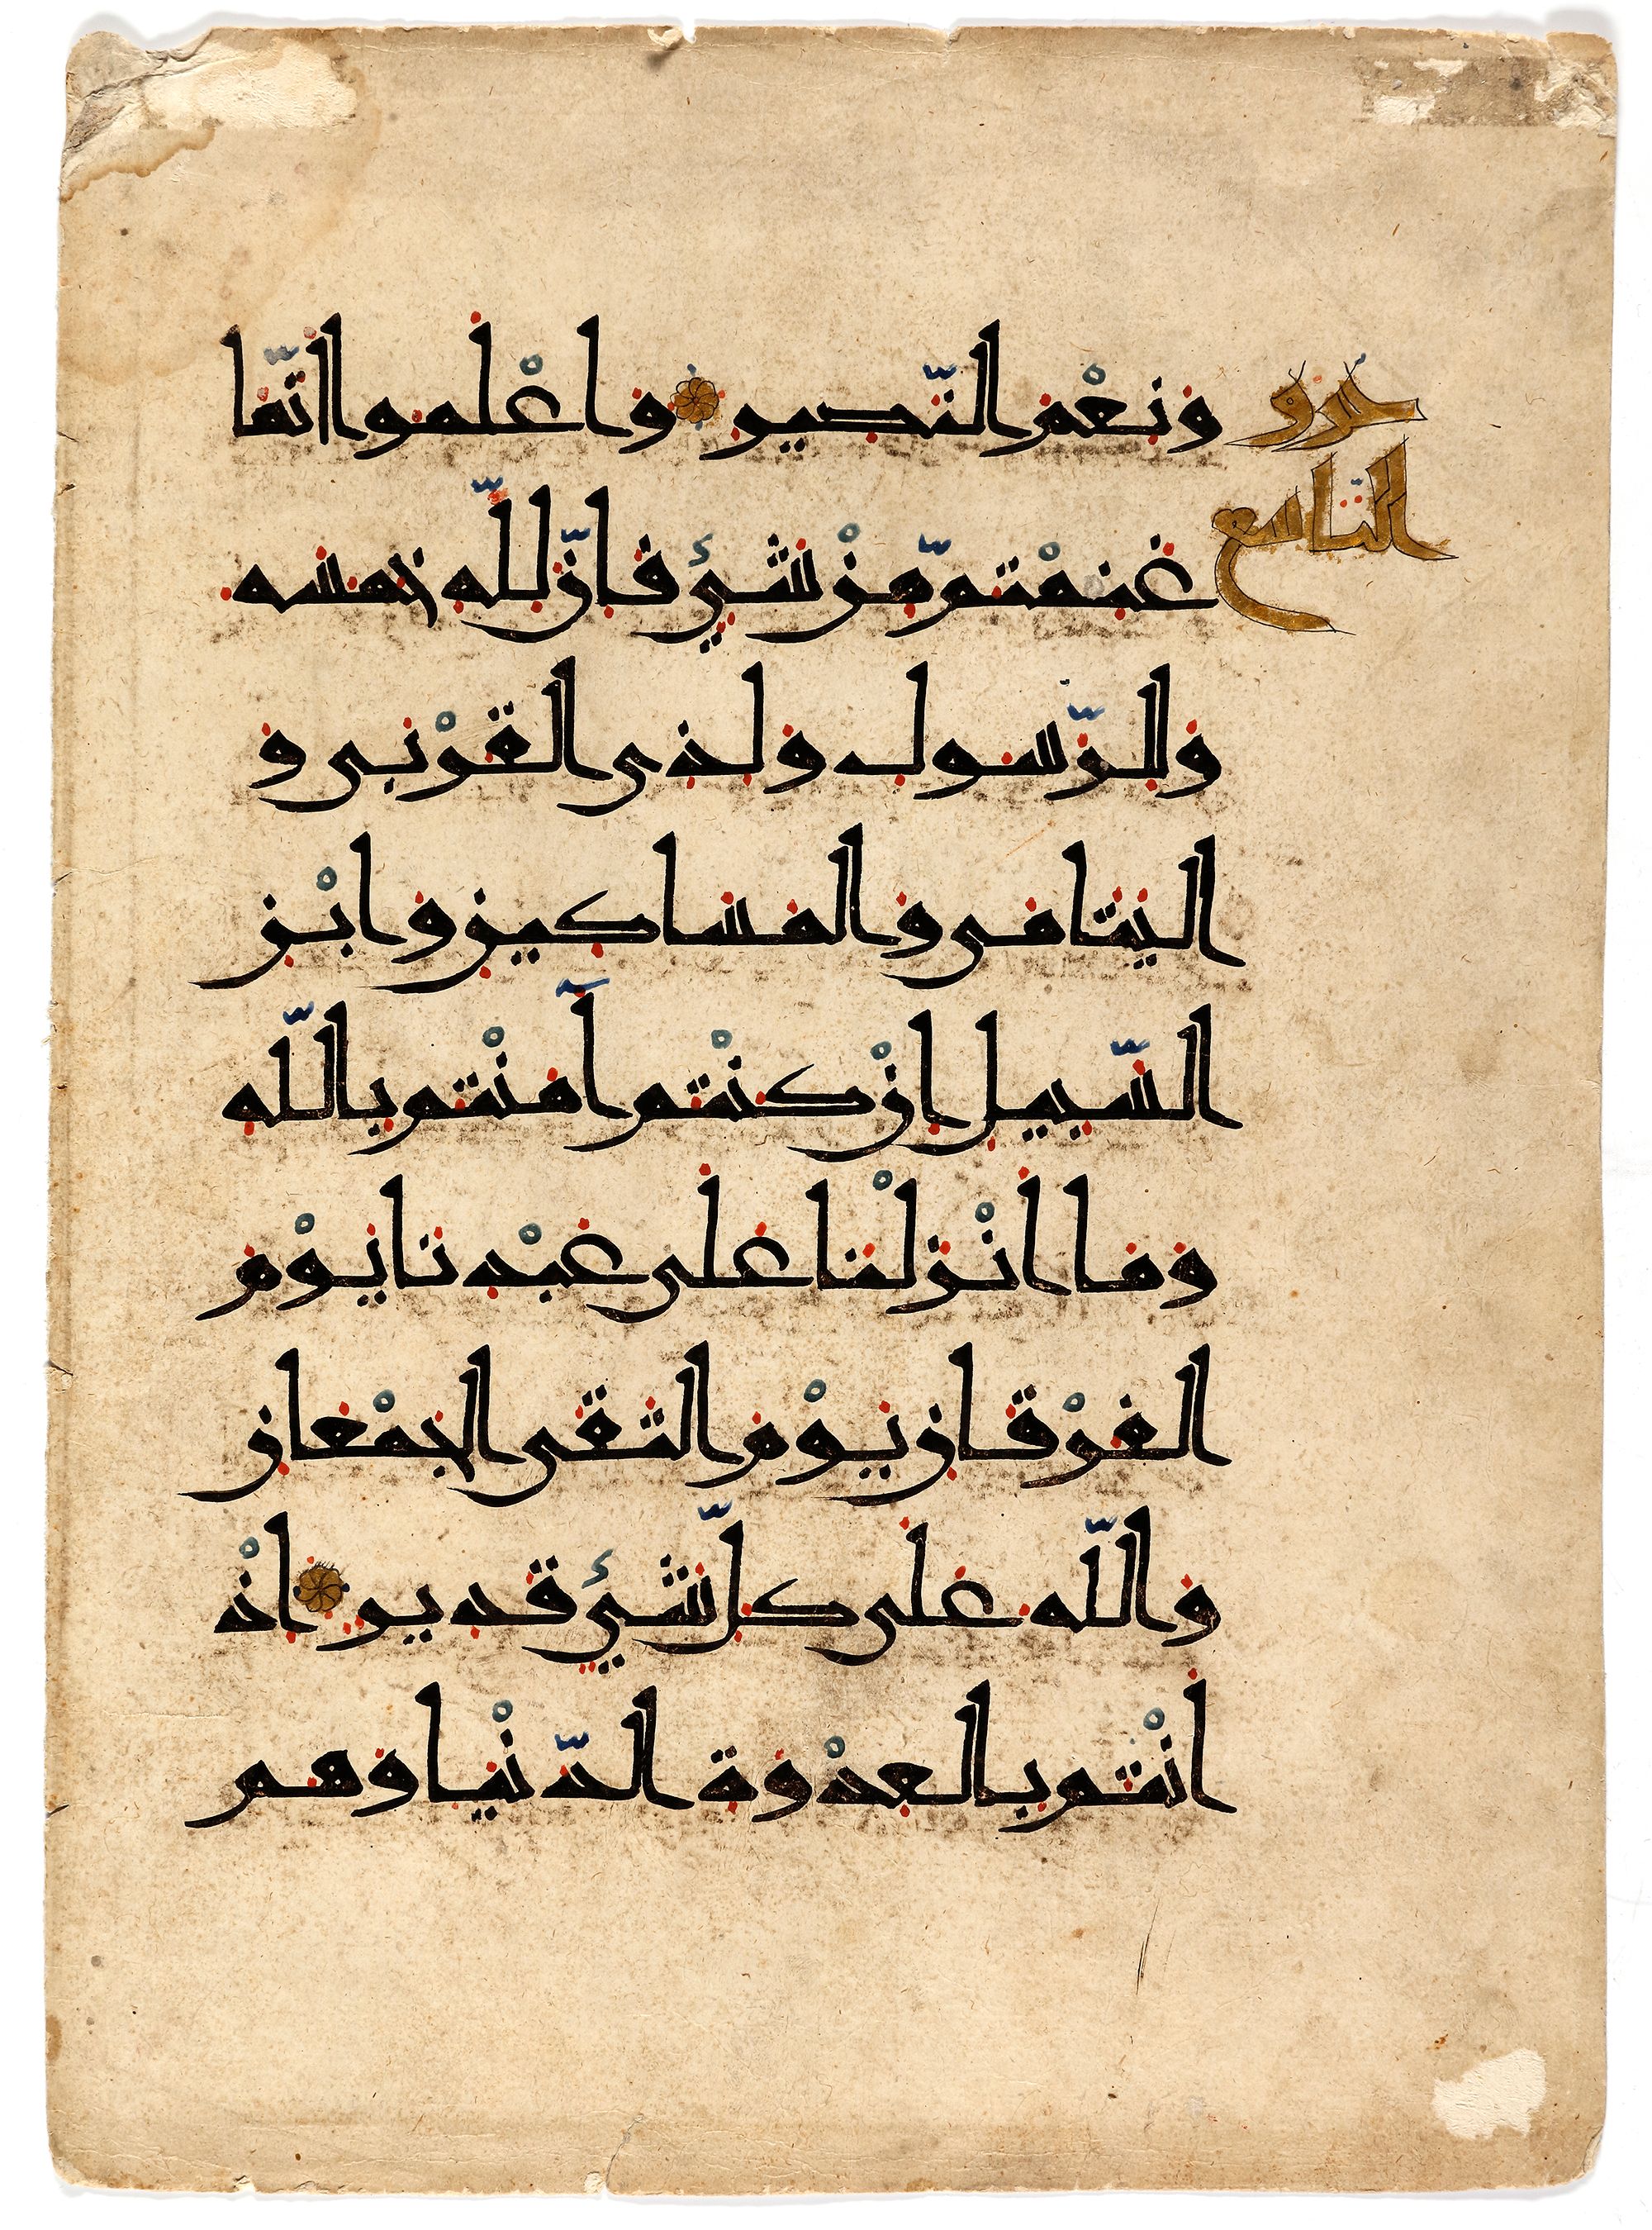 جزو
التاسع
ونعْم النّصير واعْلموا انّما
غنمْتم مّنْ شيءٍ فانّ لله خمسه
وللرّسول ولذى القرْبى و
اليتامى والمساكين وابْن
السّبيل انْ كنْتم آمنْتم باللّه
وما انْزلْنا على عبْدنا يوْم
الفرْقان يوْم التقى الجمْعان
واللّه على كلّ شيءٍ قدير اذْ
انْتم بالعدْوة الدّنْيا وهم